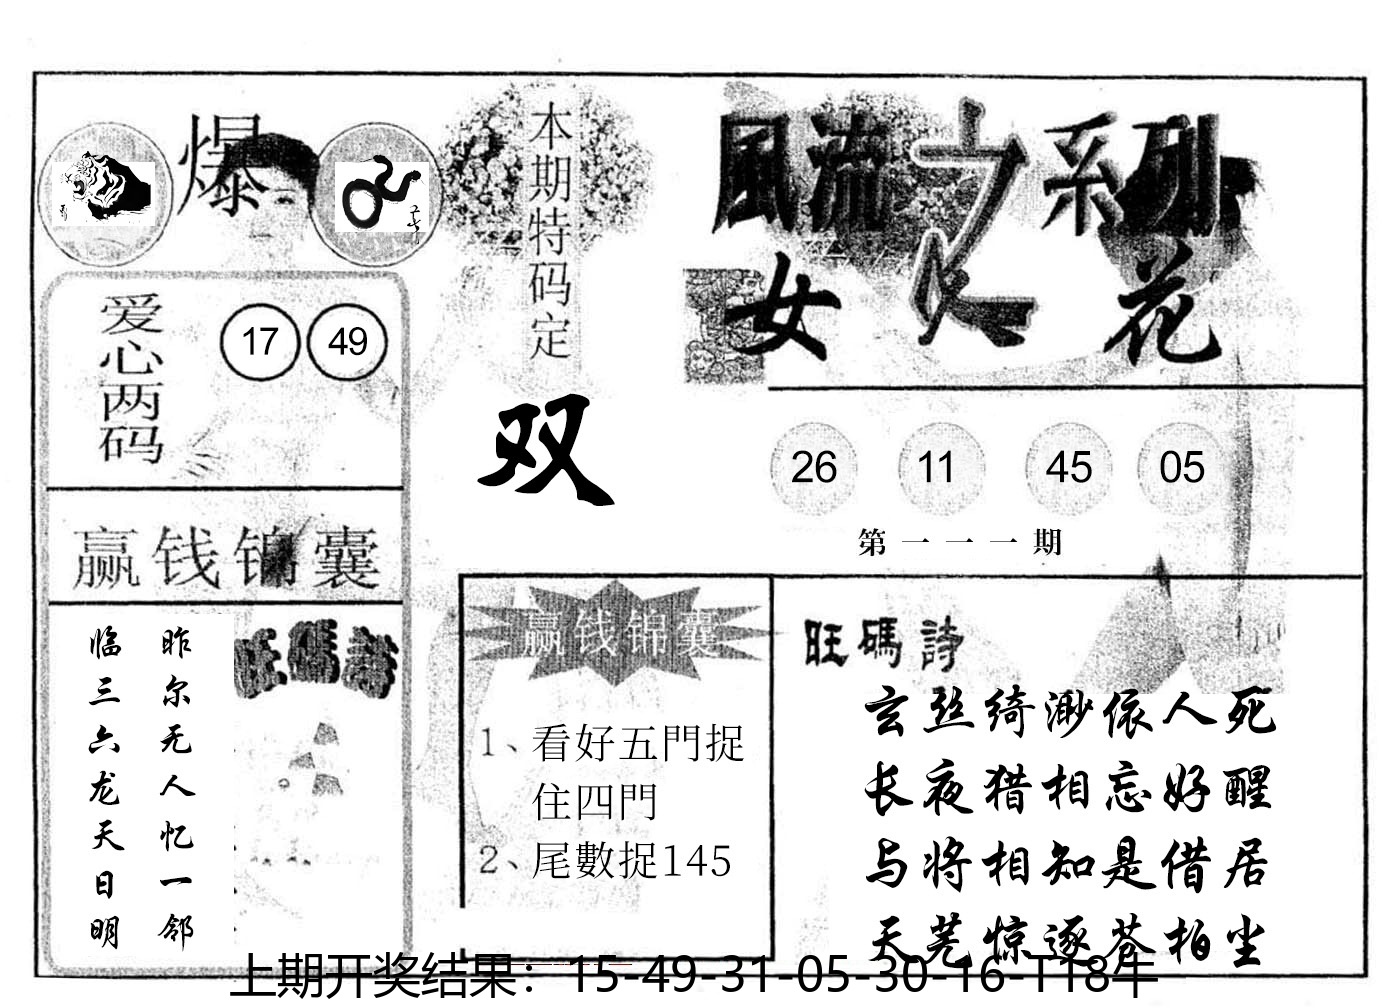 爆
本期特码定
双
爱心两码
17 49
赢钱锦囊
昨尔无人忆一邻
临三六龙天日明
旺碼詩
風流之系列
女人花
26 11 45 05
第一一一期
赢钱锦囊
1、看好五門捉
住四門
2、尾數捉145
旺碼詩
玄丝绮渺依人死
长夜猎相忘好醒
与将相知是借居
天荒惊逐苍柏尘
上期开奖结果：15-49-31-05-30-16-T18牛